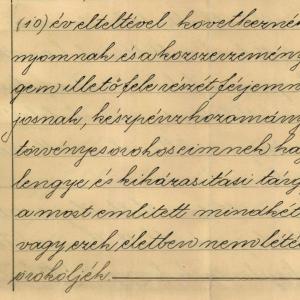 (10) év elteltével következne
nyomnak és a közszerzemény
gem illető fele részét férjemn
josnak, készpénz hozomány
törvényes örököseimnek ha
lengye és kiházasitási tárg
a most emlitett mindkét
vagy ezek életben nem lété
örököljék.